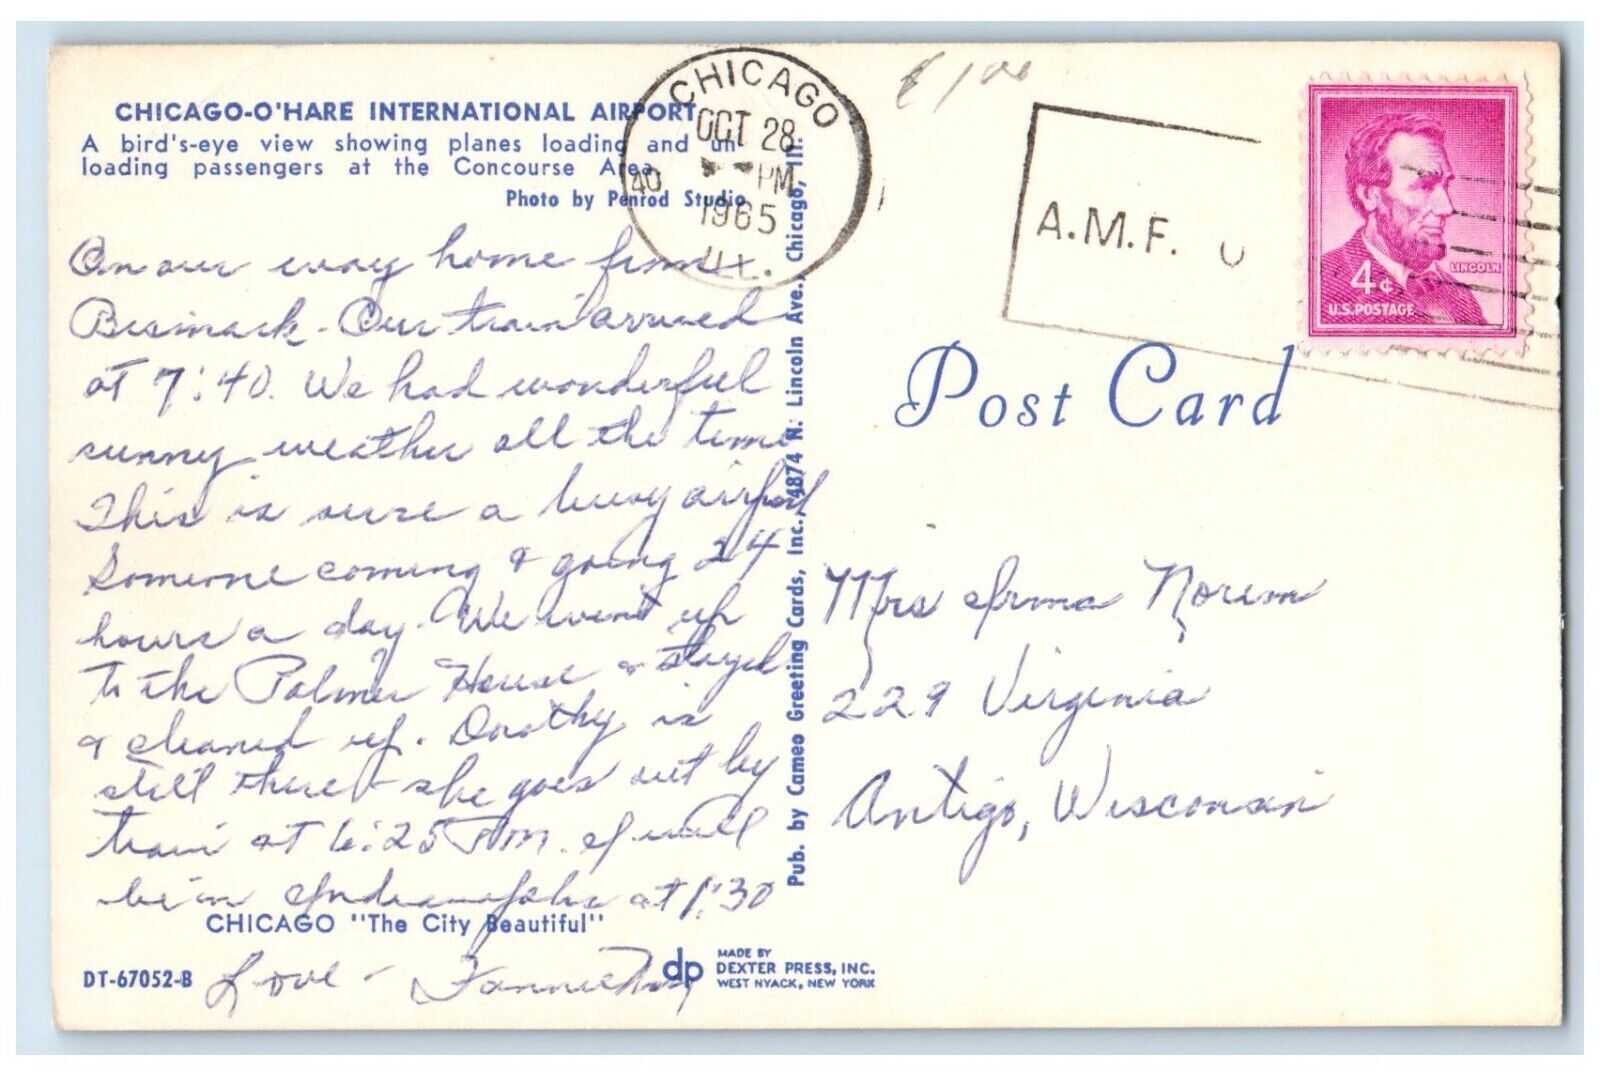 CHICAGO-O'HARE INTERNATIONAL AIRPORT
A bird's-eye view showing planes loading and un-
loading passengers at the Concourse Area.
Photo by Penrod Studio
On our way home from
Bismarck. Our train arrived
at 7:40. We had wonderful
sunny weather all the time
This is sure a busy airport
Someone coming & going 24
hours a day. We went up
to the Palmer House & stayed
& cleaned up. Dorothy is
still there - she goes out by
train at 6:25 P.M. I will
be in Indianapolis at 1:30
CHICAGO "The City Beautiful"
DT-67052-B
Love - Fannie
dp
MADE BY
DEXTER PRESS, INC.
WEST NYACK, NEW YORK
Pub. by Cameo Greeting Cards, Inc., 4874 N. Lincoln Ave., Chicago, Ill.
CHICAGO
OCT 28
PM
40
1965
ILL.
A.M.F. O
LINCOLN
4¢
U.S. POSTAGE
Post Card
Mrs Irma Norem
229 Virginia
Antigo, Wisconsin